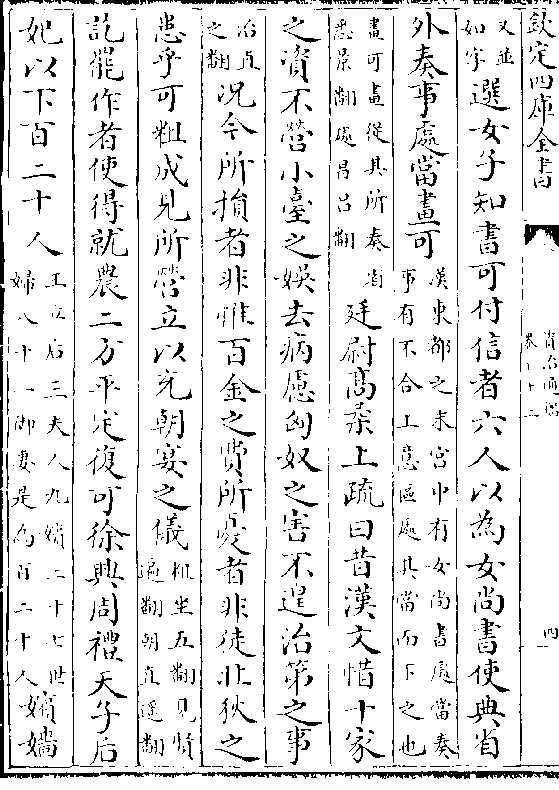 欽定四庫全書 資治通鑑 卷七十三 四
又並如字選女子知書可付信者六人以為女尚書使典省
外奏事處當畫可漢東都之末宮中有女尚書處當奏事有不合上意區處其當而下之也
畫可畫從其所奏省悉景翻處昌呂翻廷尉高柔上疏曰昔漢文惜十家
之資不營小臺之娛去病慮匈奴之害不遑治第之事
治直之翻況今所損者非惟百金之費所憂者非徒北狄之
患乎可粗成見所營立以充朝宴之儀粗坐五翻見賢遍翻朝直遥翻
訖罷作者使得就農二方平定復可徐興周禮天子后
妃以下百二十人王立后三夫人九嬪二十七世婦八十一御妻是為百二十人嬪嬙